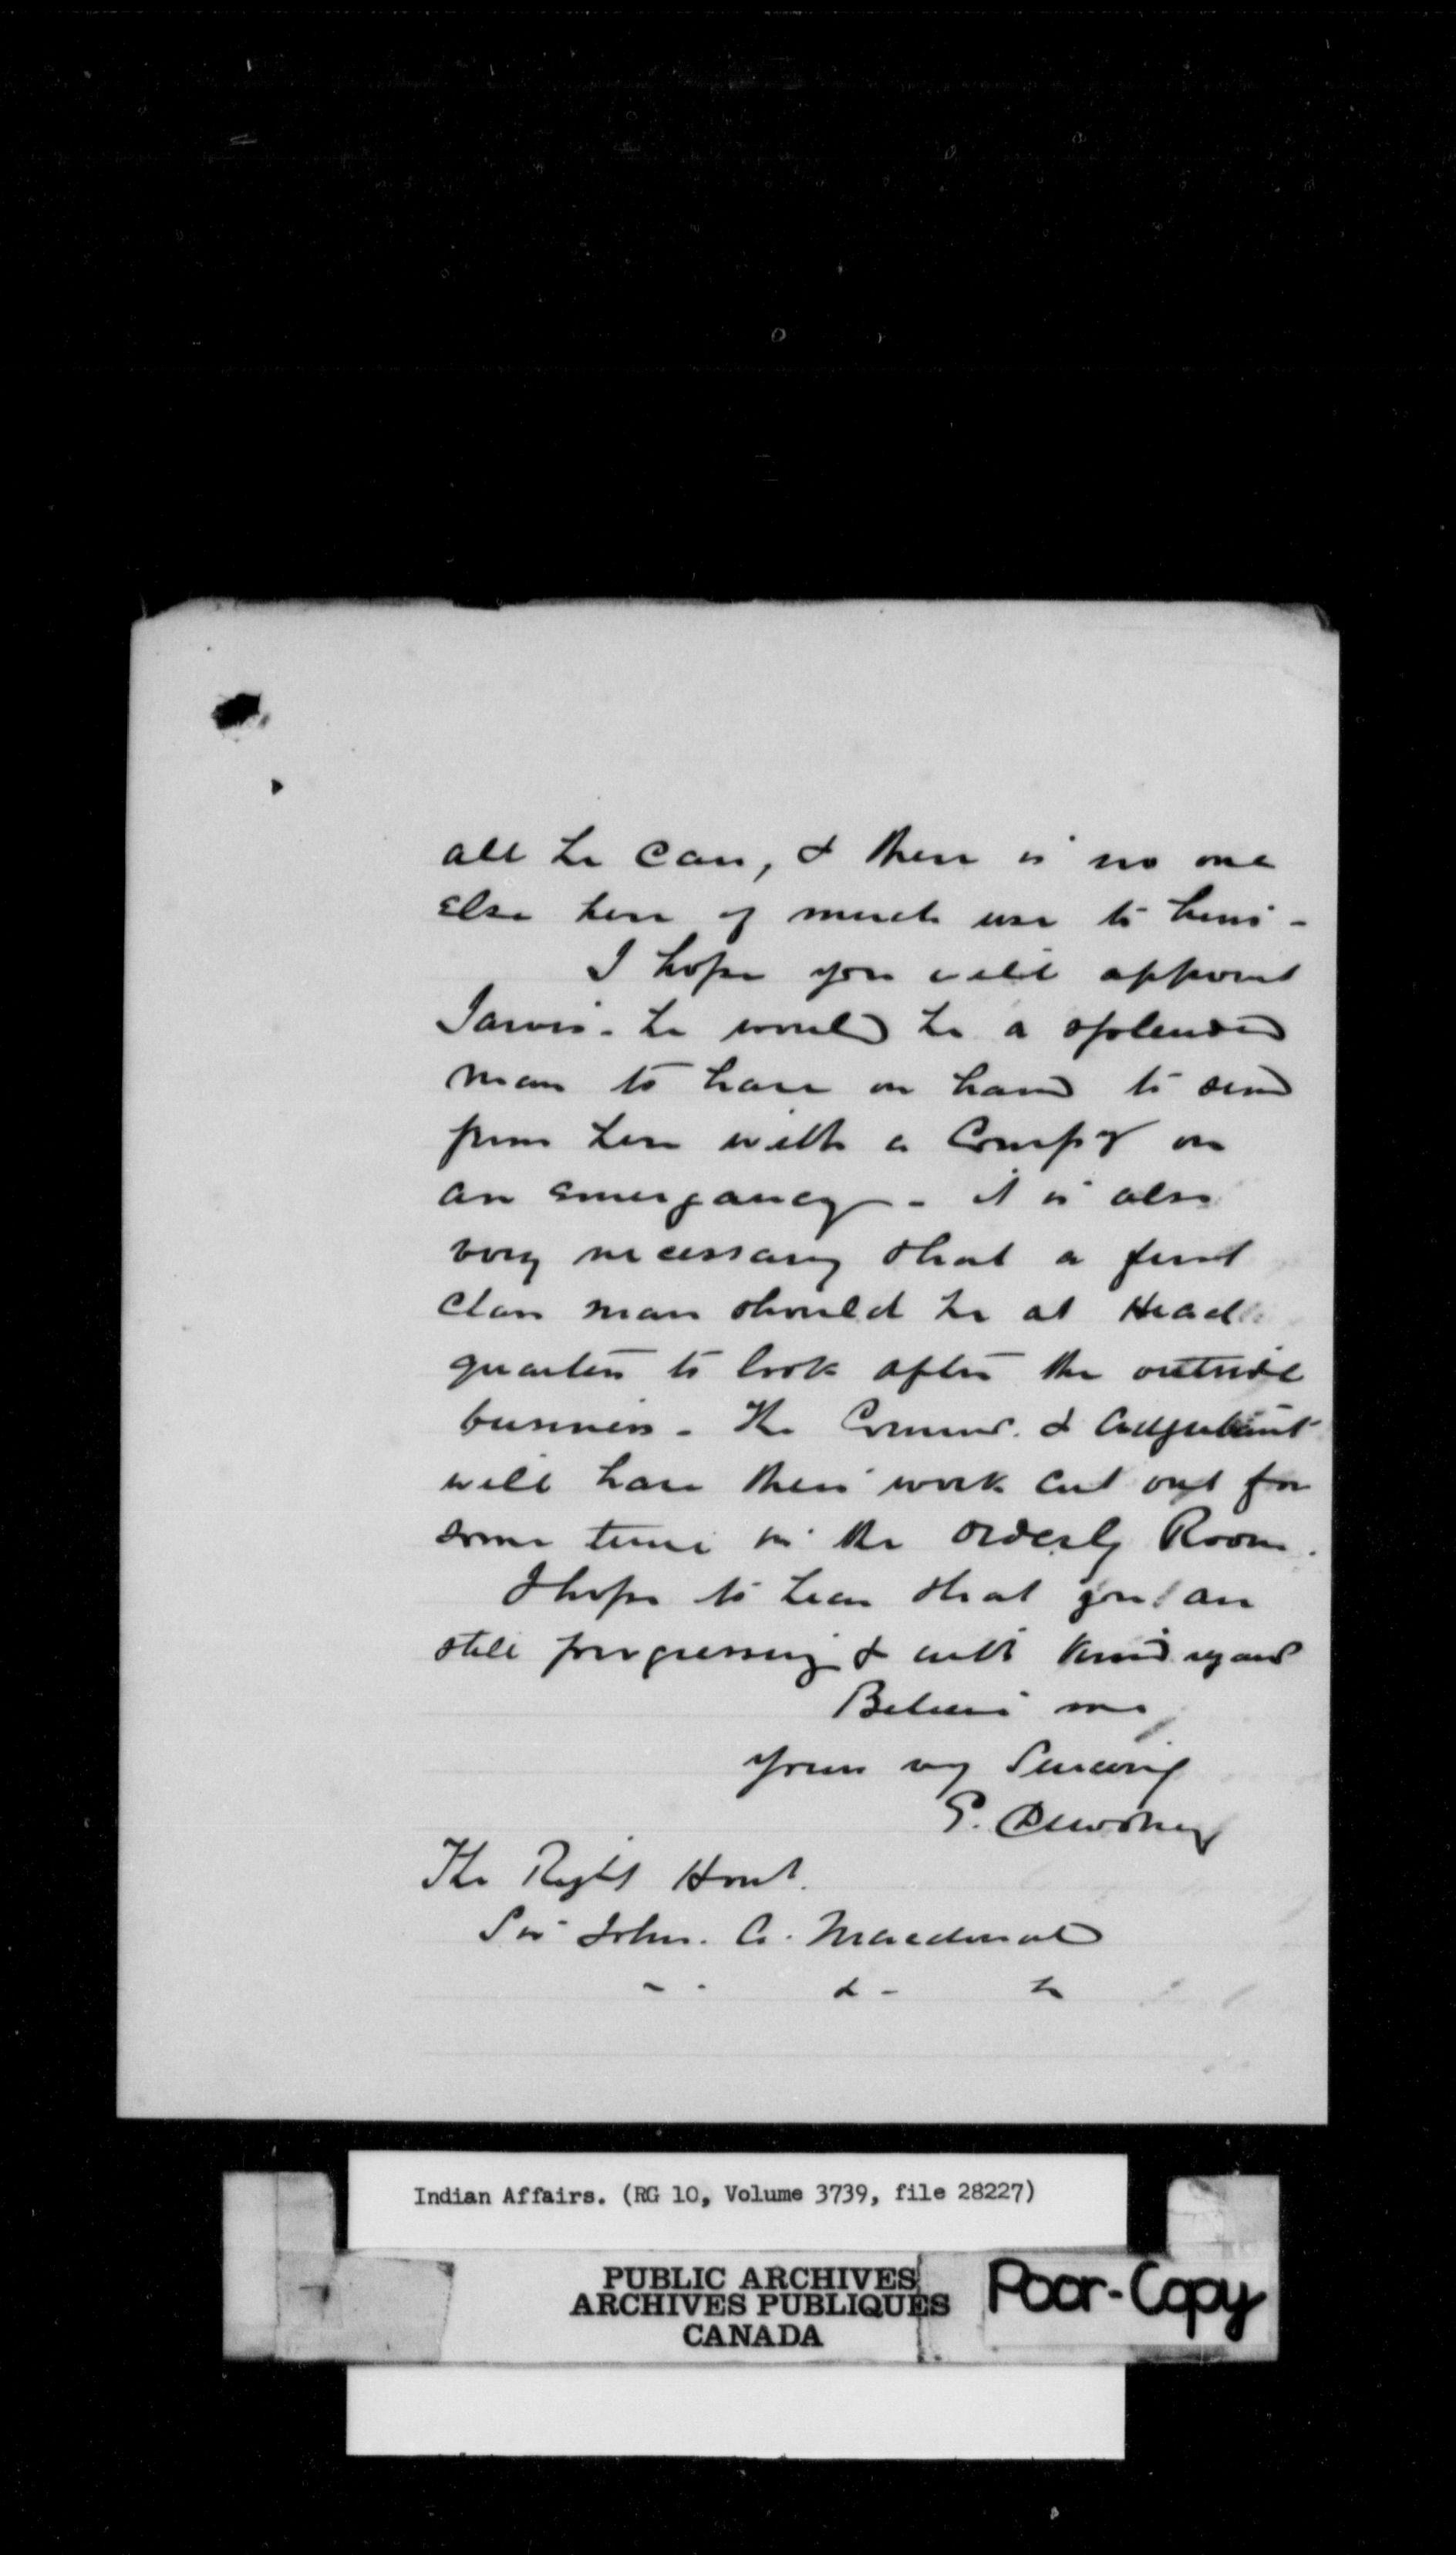 all he can, & there is no one
else here of much use to him -
I hope you will appoint
Jarvis - he would be a splendid
man to have on hand to send
from here with a Compy on
an emergancy - it is also
very necessary that a first
class man should be at Head
quarters to look after the outside
business - The Commr. & Adjutant
will have their work cut out for
some time in the Orderly Room.
I hope to hear that you are
still progressing & with kind regards
Believe me
Yours very Sincerely
E. Dewdney
The Right Honl.
Sir John. A. Macdonald
Indian Affairs. (RG 10, Volume 3739, file 28227)
PUBLIC ARCHIVES
ARCHIVES PUBLIQUES
CANADA
Poor-Copy